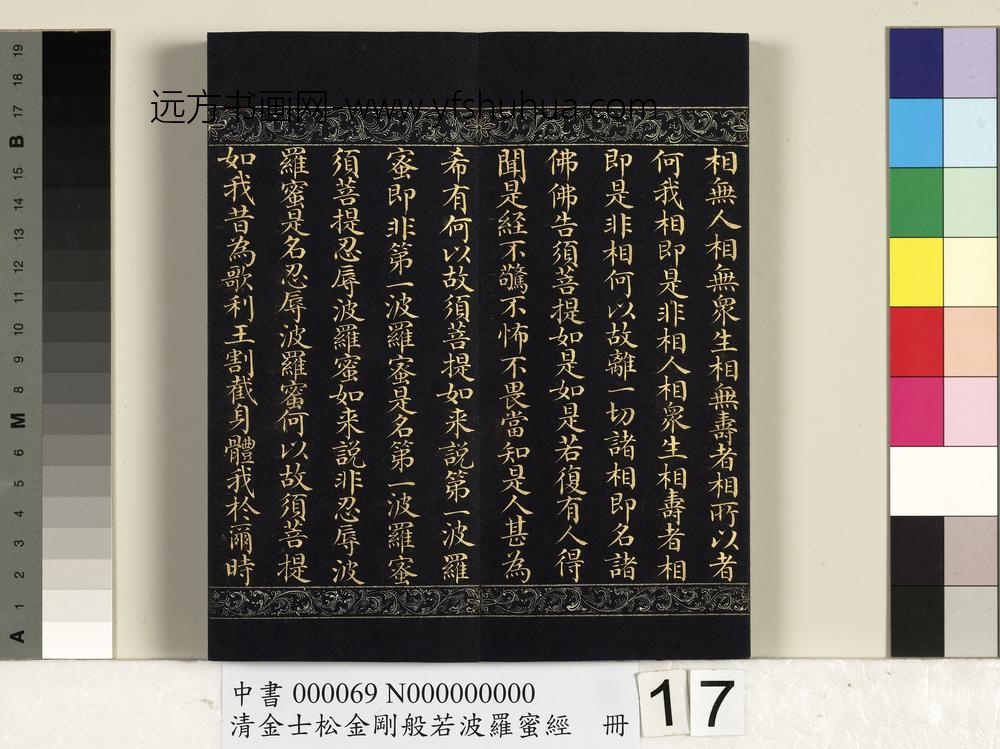 远方书画网 www.yfshuhua.com
相無人相無衆生相無壽者相所以者
何我相即是非相人相衆生相壽者相
即是非相何以故離一切諸相即名諸
佛佛告須菩提如是如是若復有人得
聞是経不驚不怖不畏當知是人甚為
希有何以故須菩提如来説第一波羅
蜜即非第一波羅蜜是名第一波羅蜜
須菩提忍辱波羅蜜如来説非忍辱波
羅蜜是名忍辱波羅蜜何以故須菩提
如我昔為歌利王割截身體我於爾時
19 18 17 B 15 14 13 12 11 10 9 8 M 6 5 4 3 2 1 A
中書 000069 N000000000
清金士松金剛般若波羅蜜經 冊
17